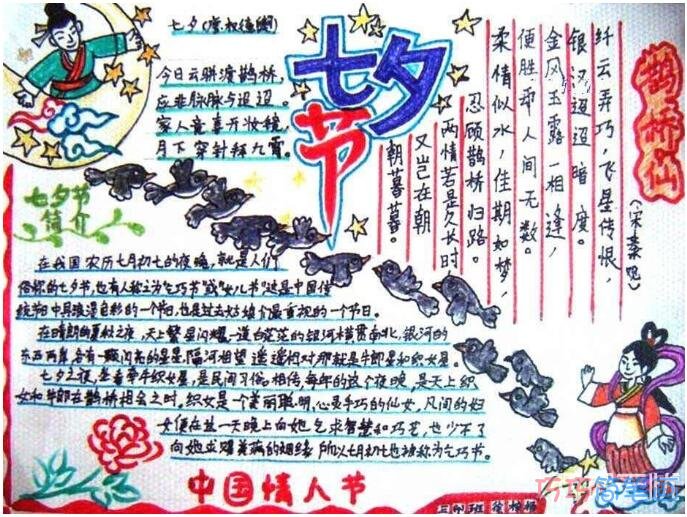 七夕(唐·权德舆)
今日云骈渡鹊桥，
应非脉脉与迢迢。
家人竟喜开妆镜，
月下穿针拜九霄。
七夕
节
鹊桥仙
(宋秦观)
纤云弄巧，飞星传恨，
银汉迢迢暗度。
金风玉露一相逢，
便胜却人间无数。
柔情似水，佳期如梦，
忍顾鹊桥归路。
两情若是久长时
又岂在朝
朝暮暮。
七夕节
简介
在我国农历七月初七的夜晚，就是人们
俗称的七夕节，也有人称之为"乞巧节"或"女儿节"这是中国传
统节日中具浪漫色彩的一个节日，也是过去姑娘们最重视的一个节日。
在晴朗的夏秋之夜，天上繁星闪耀，一道白茫茫的银河横贯南北，银河的
东西两岸，各有一颗闪亮的星星，隔河相望，遥遥相对那就是牛郎星和织女星。
七夕之夜，坐看牵牛织女星，是民间习俗，相传，每年的这个夜晚，是天上织
女和牛郎在鹊桥相会之时，织女是一个美丽聪明、心灵手巧的仙女，凡间的妇
女便在这一天晚上向她乞求智慧和巧艺，也少不了
向她求赐美满的姻缘，所以七月初七也被称为乞巧节。
中国情人节